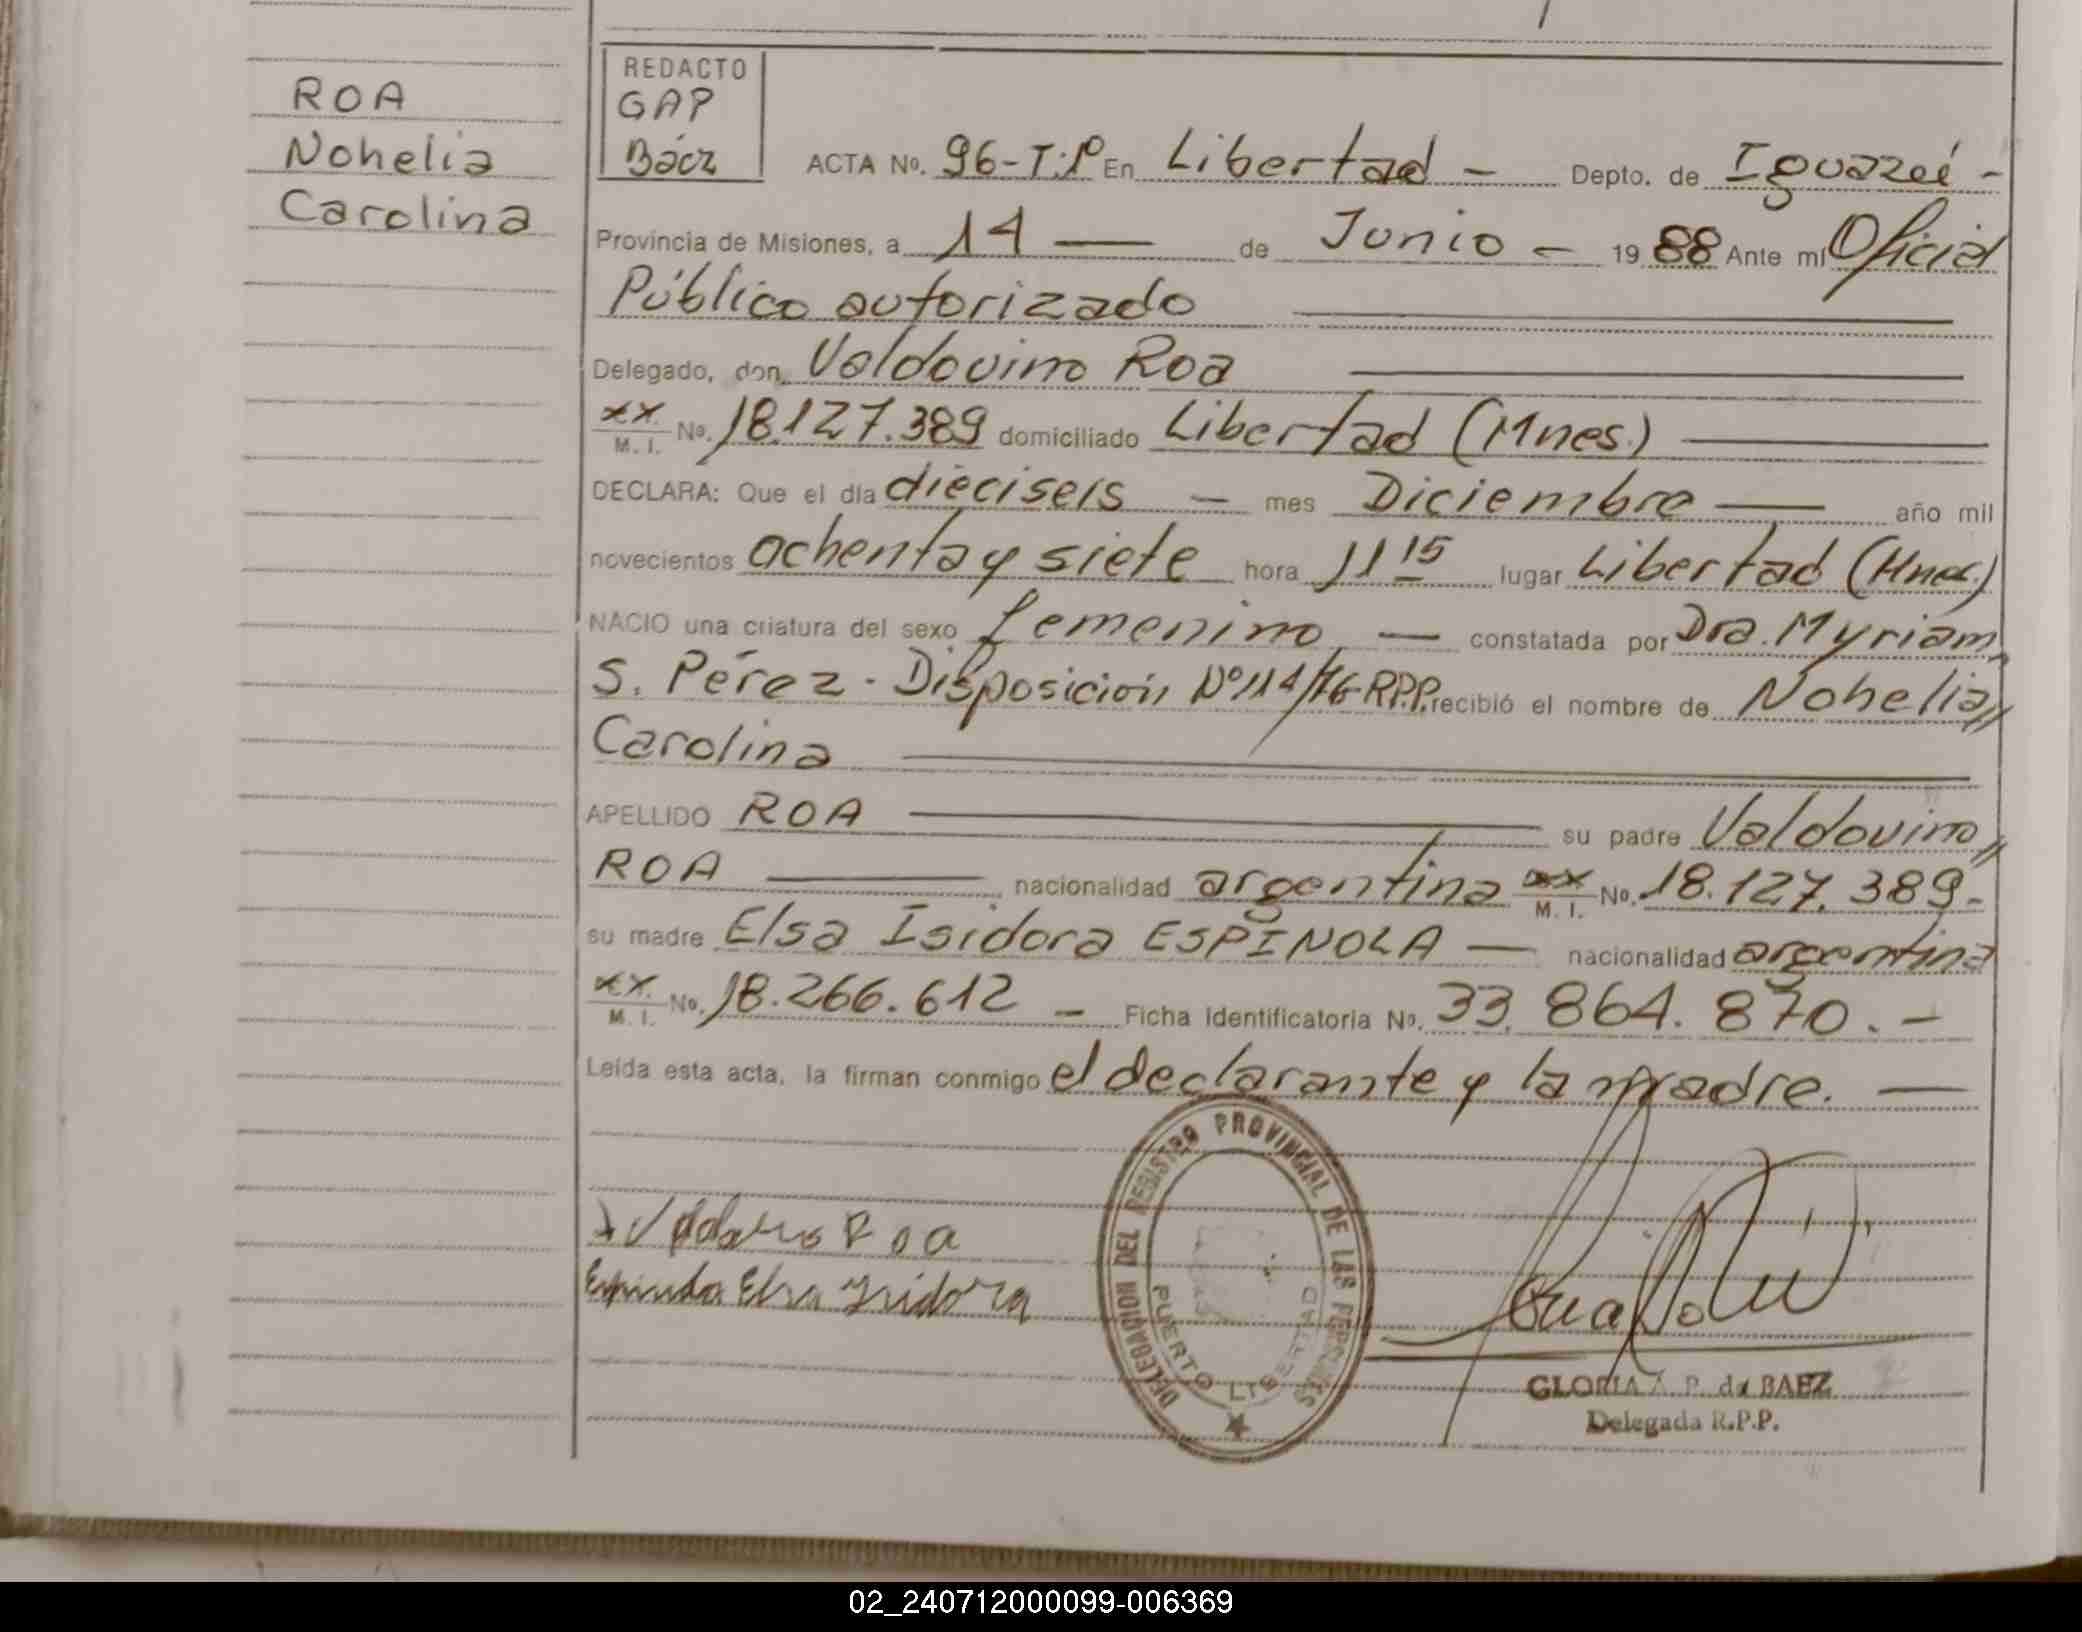 ROA
Nohelia
Carolina
REDACTO
GAP
Báez
ACTA No. 96-T:1º En Libertad - Depto. de Iguazú -
Provincia de Misiones, a 14 — de Junio - 1988 Ante mí Oficial
Público autorizado
Delegado, don Valdovino Roa
xx. M. I. No. 18.127.389 domiciliado Libertad (Mnes.)
DECLARA: Que el día dieciseis — mes Diciembre — año mil
novecientos ochenta y siete hora 11 15 lugar Libertad (Mnes.)
NACIO una criatura del sexo femenino — constatada por Dra. Myriam
S. Pérez - Disposición Nº 114/76-R.P.P. recibió el nombre de Nohelia//
Carolina
APELLIDO ROA su padre Valdovino//
ROA — nacionalidad argentina xx M. I. No. 18.127.389-
su madre Elsa Isidora ESPINOLA — nacionalidad argentina
xx. M. I. No. 18.266.612 - Ficha Identificatoria No. 33.864.870.-
Leída esta acta, la firman conmigo el declarante y la madre. —
DELEGACION DEL REGISTRO PROVINCIAL DE LAS PERSONAS
PUERTO LIBERTAD
Roa
Espinola Elsa Ysidora
GLORIA A. P. de BAEZ
Delegada R.P.P.
02_240712000099-006369